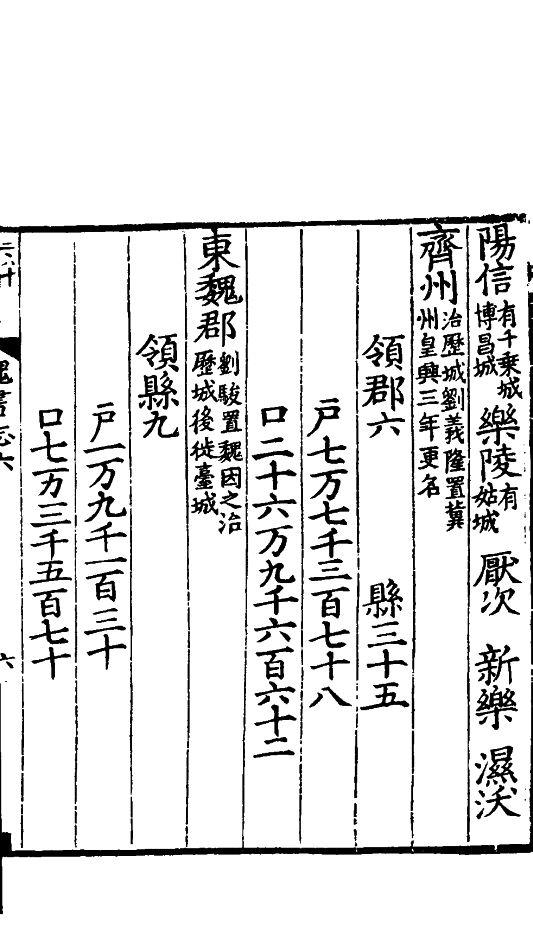 陽信有千乗城博昌城樂陵有姑城 厭次 新樂 濕沃
齊州治歷城劉義隆置冀州皇興三年更名
領郡六 縣三十五
戸七万七千三百七十八
口二十六万九千六百六十二
東魏郡劉駿置魏因之治歷城後徙臺城
領縣九
戸一万九千一百三十
口七万三千五百七十
魏書志六 六